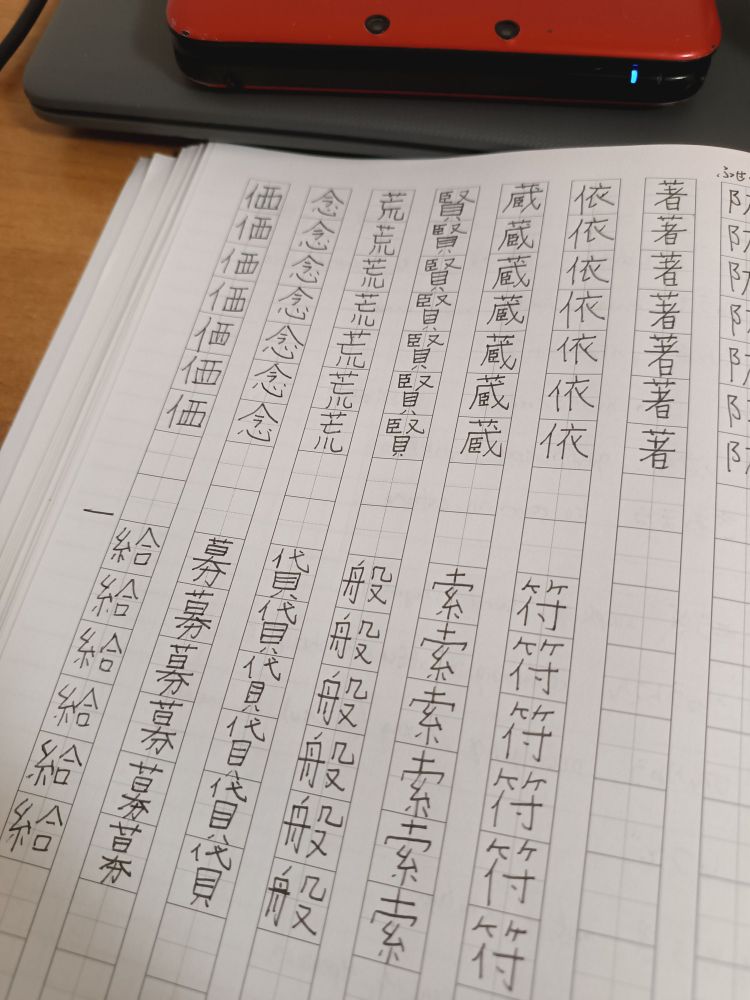 ふせ
著著著著著著著
依依依依依依依　符符符符符符
蔵蔵蔵蔵蔵蔵蔵　索索索索索索
賢賢賢賢賢賢賢　般般般般般般
荒荒荒荒荒荒荒　貸貸貸貸貸貸
念念念念念念念　募募募募募募
価価価価価価価　給給給給給給